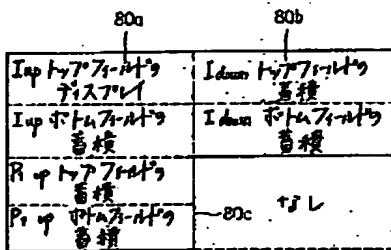 80a
80b
Iup トップフィールドの
ディスプレイ
Idown トップフィールドの
蓄積
Iup ボトムフィールドの
蓄積
Idown ボトムフィールドの
蓄積
P1 up トップフィールドの
蓄積
P1 up ボトムフィールドの
蓄積
80c
なし